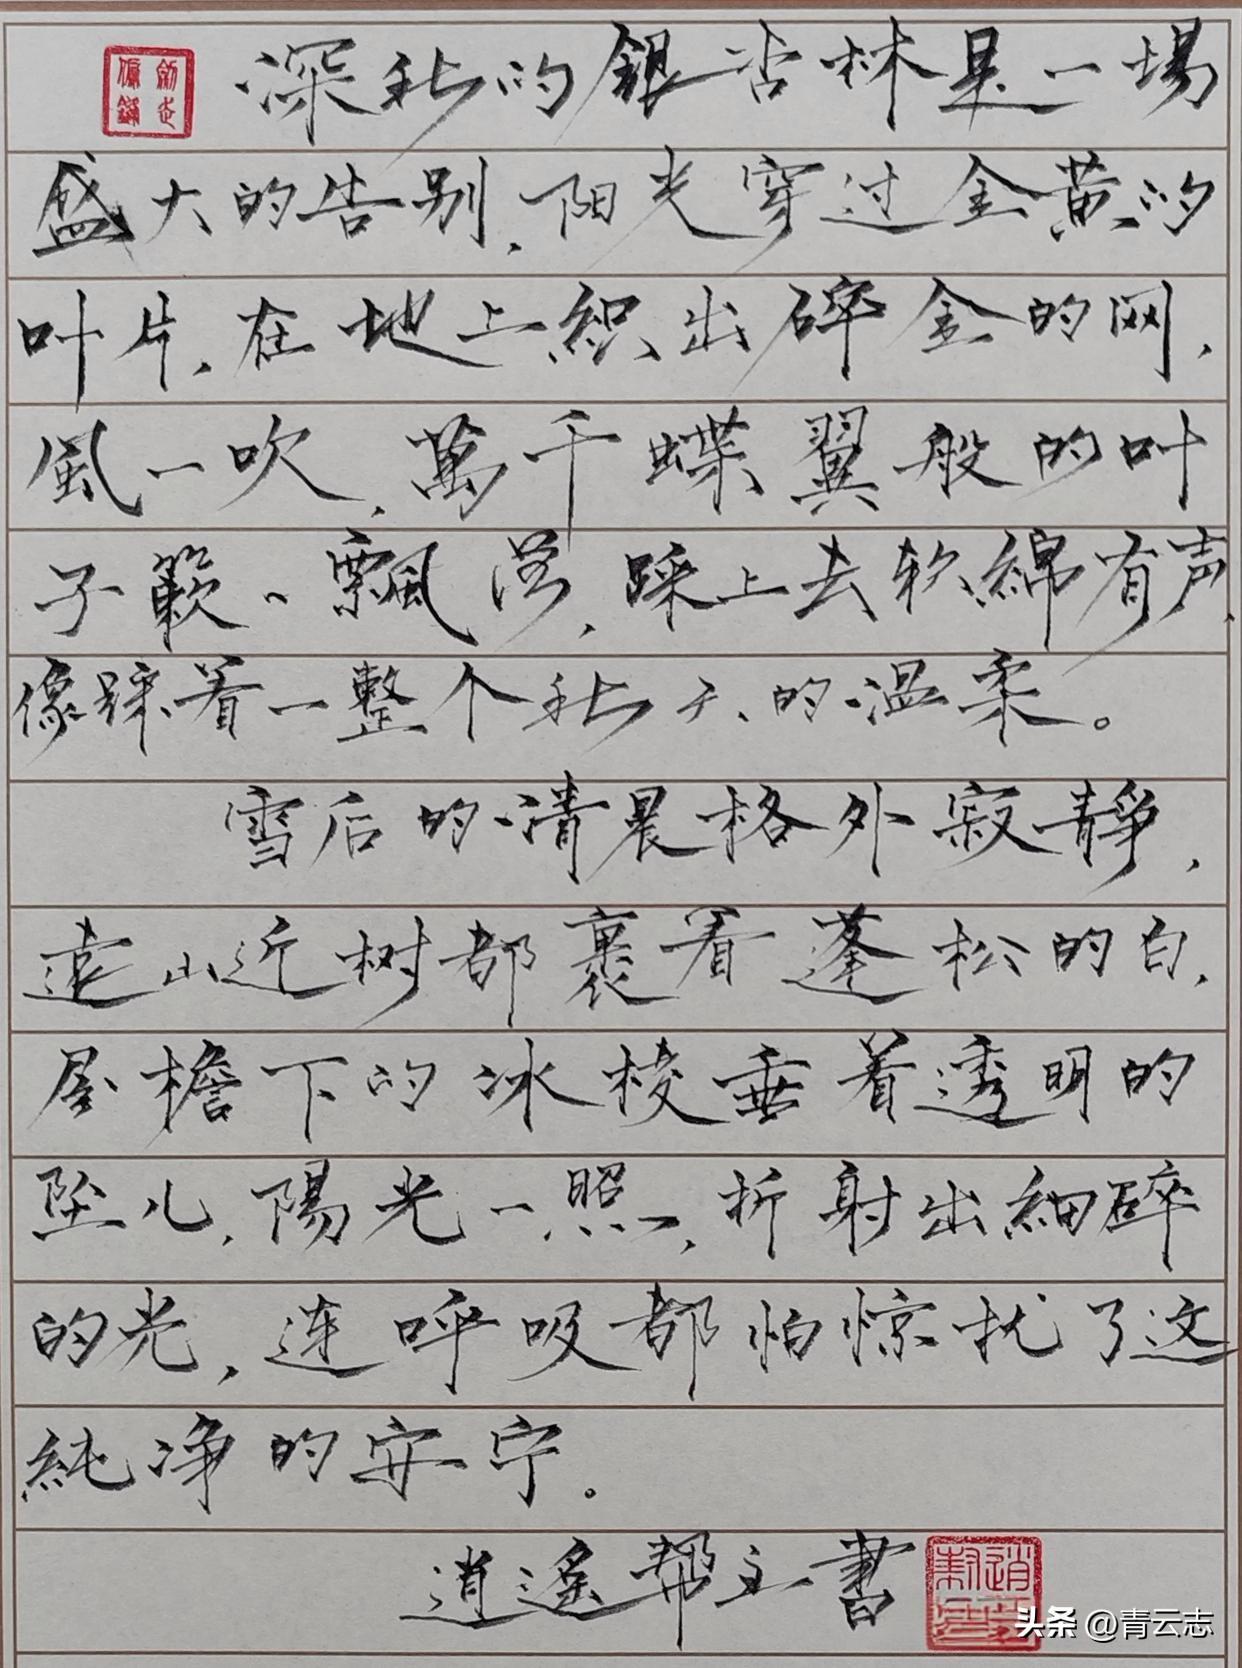 深秋的銀杏林是一場
盛大的告别,阳光穿过金黄的
叶片,在地上織出碎金的网,
風一吹,萬千蝶翼般的叶
子簌、飄落,踩上去软綿有声,
像踩着一整个秋天的温柔。
雪后的清晨格外寂靜,
遠山近树都裹着蓬松的白,
屋檐下的冰棱垂着透明的
坠儿,陽光一照,折射出細碎
的光,连呼吸都怕惊扰了这
純净的安宁。
逍遙帮主書
头条 @青云志